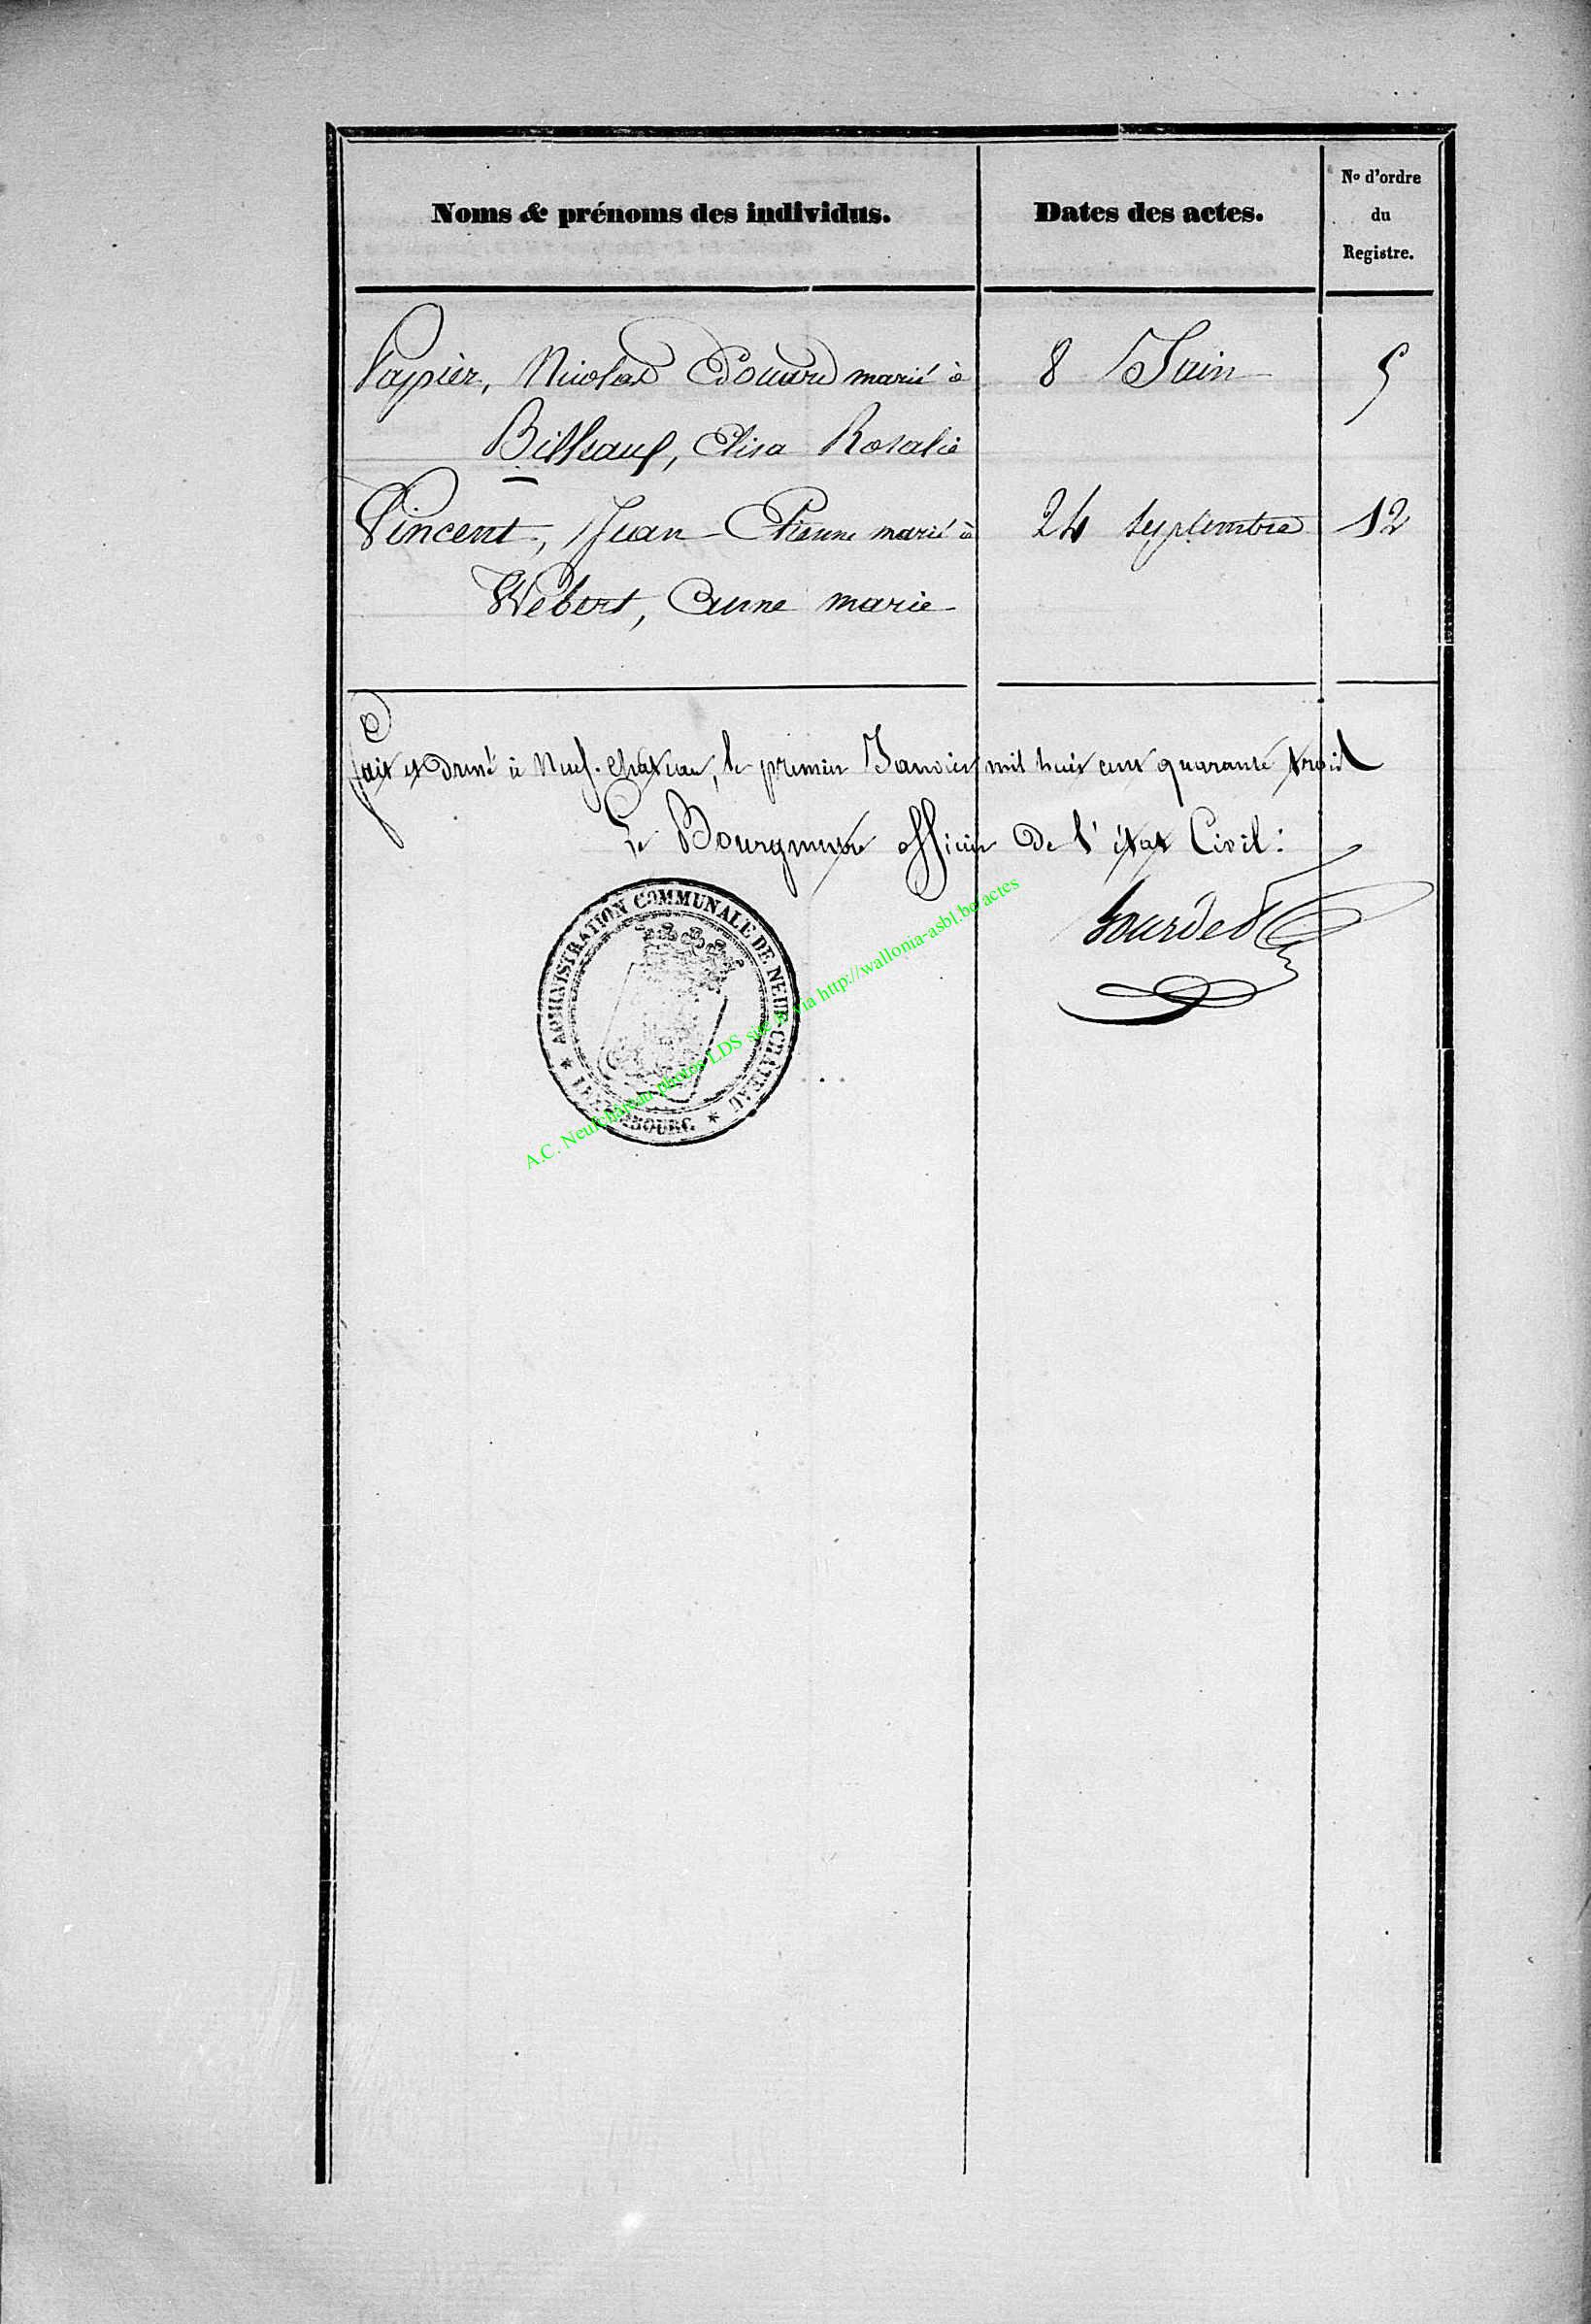 Noms & prénoms des individus.
Dates des actes.
No d'ordre
du
Registre.
Papier, Nicolas Edouard marié à
8 Juin
5
Elisa Rosalie
Vincent, Jean-Etienne marié à
24 septembre
12
Webert, Anne marie
fait et donné à Neuf-chateau, le premier Janvier mil huit cent quarante trois
Le Bourgmestre officier de l'état Civil:
Bourdet
ADMINISTRATION COMMUNALE DE NEUF-CHATEAU
LUXEMBOURG
A.C. Neufchâteau photos LDS site via http://wallonia-asbl.be/actes